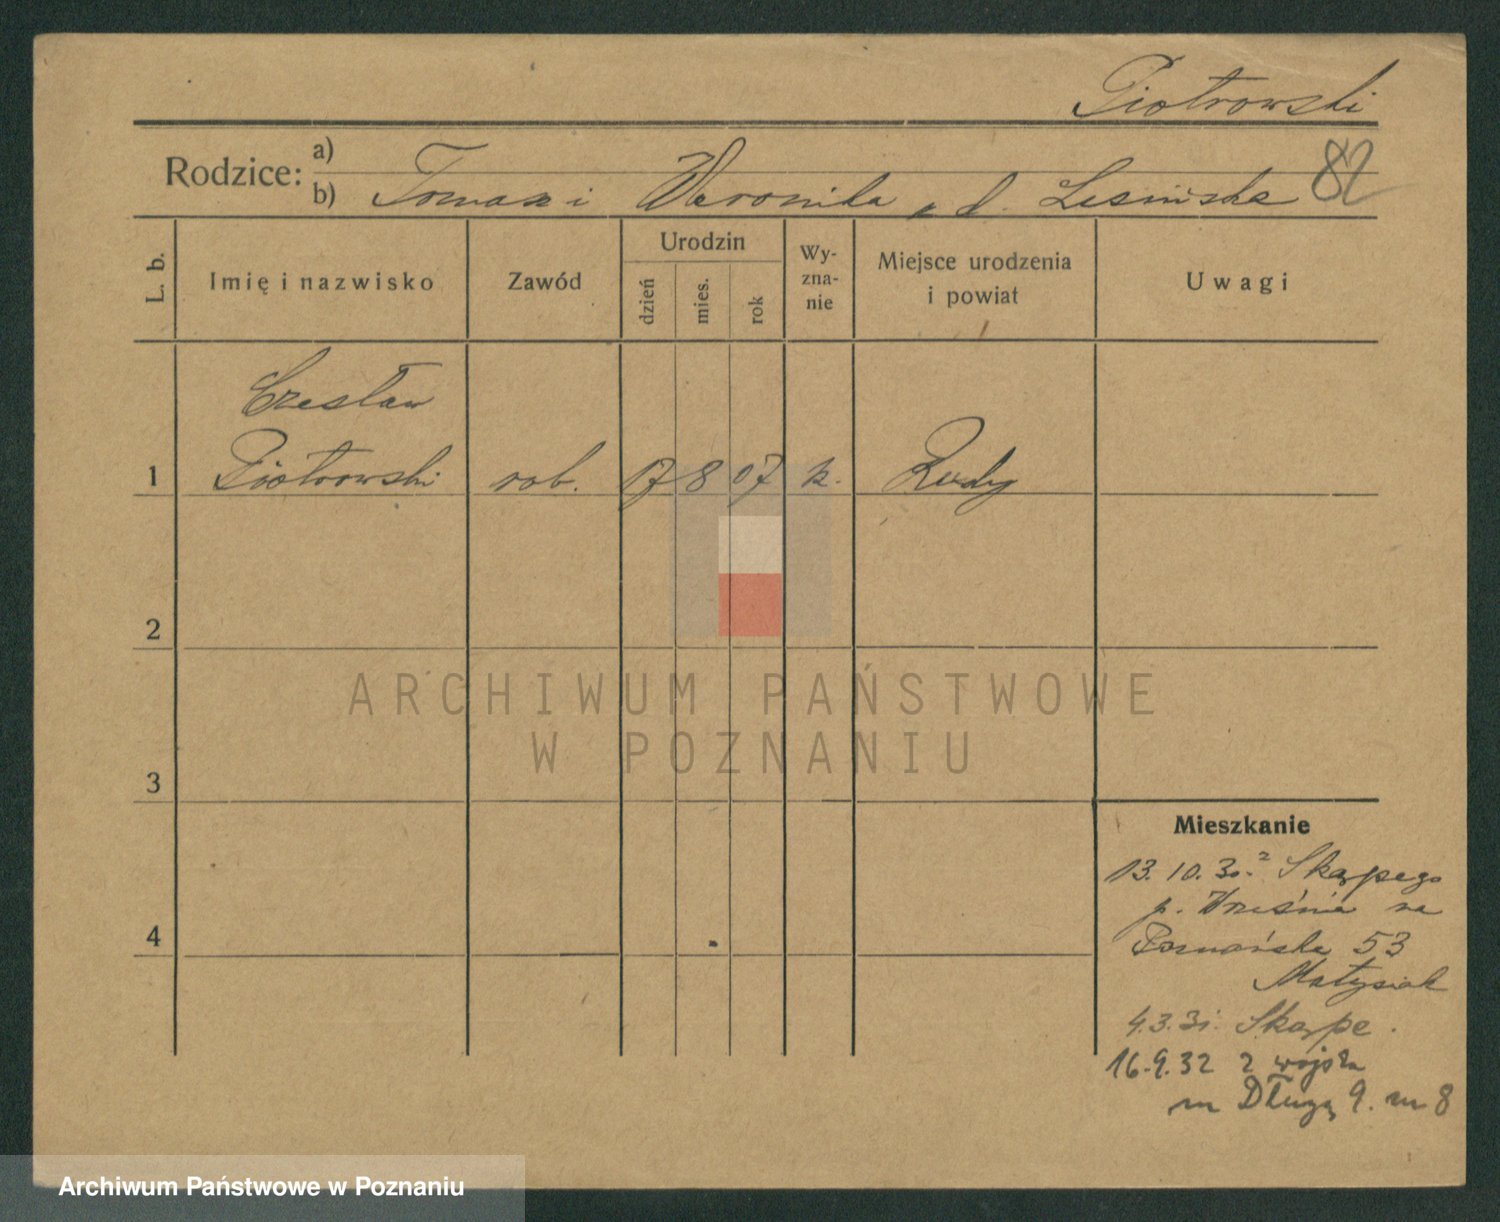 Piotrowski
Rodzice: a)
b) Tomasz i Weronika z d. Lesińska 82
L. b. Imię i nazwisko Zawód Urodzin dzień mies. rok Wy-zna-nie Miejsce urodzenia i powiat Uwagi
Czesław
1 Piotrowski rob. 17 8 07 k. Rudy
2
3
4
Mieszkanie
13.10.30. z Skąpego
p. Września na
Poznańska 53
Matysiak
4.3.31. Skąpe.
16.9.32 z wojska
na Długą 9. m 8
ARCHIWUM PAŃSTWOWE
W POZNANIU
Archiwum Państwowe w Poznaniu